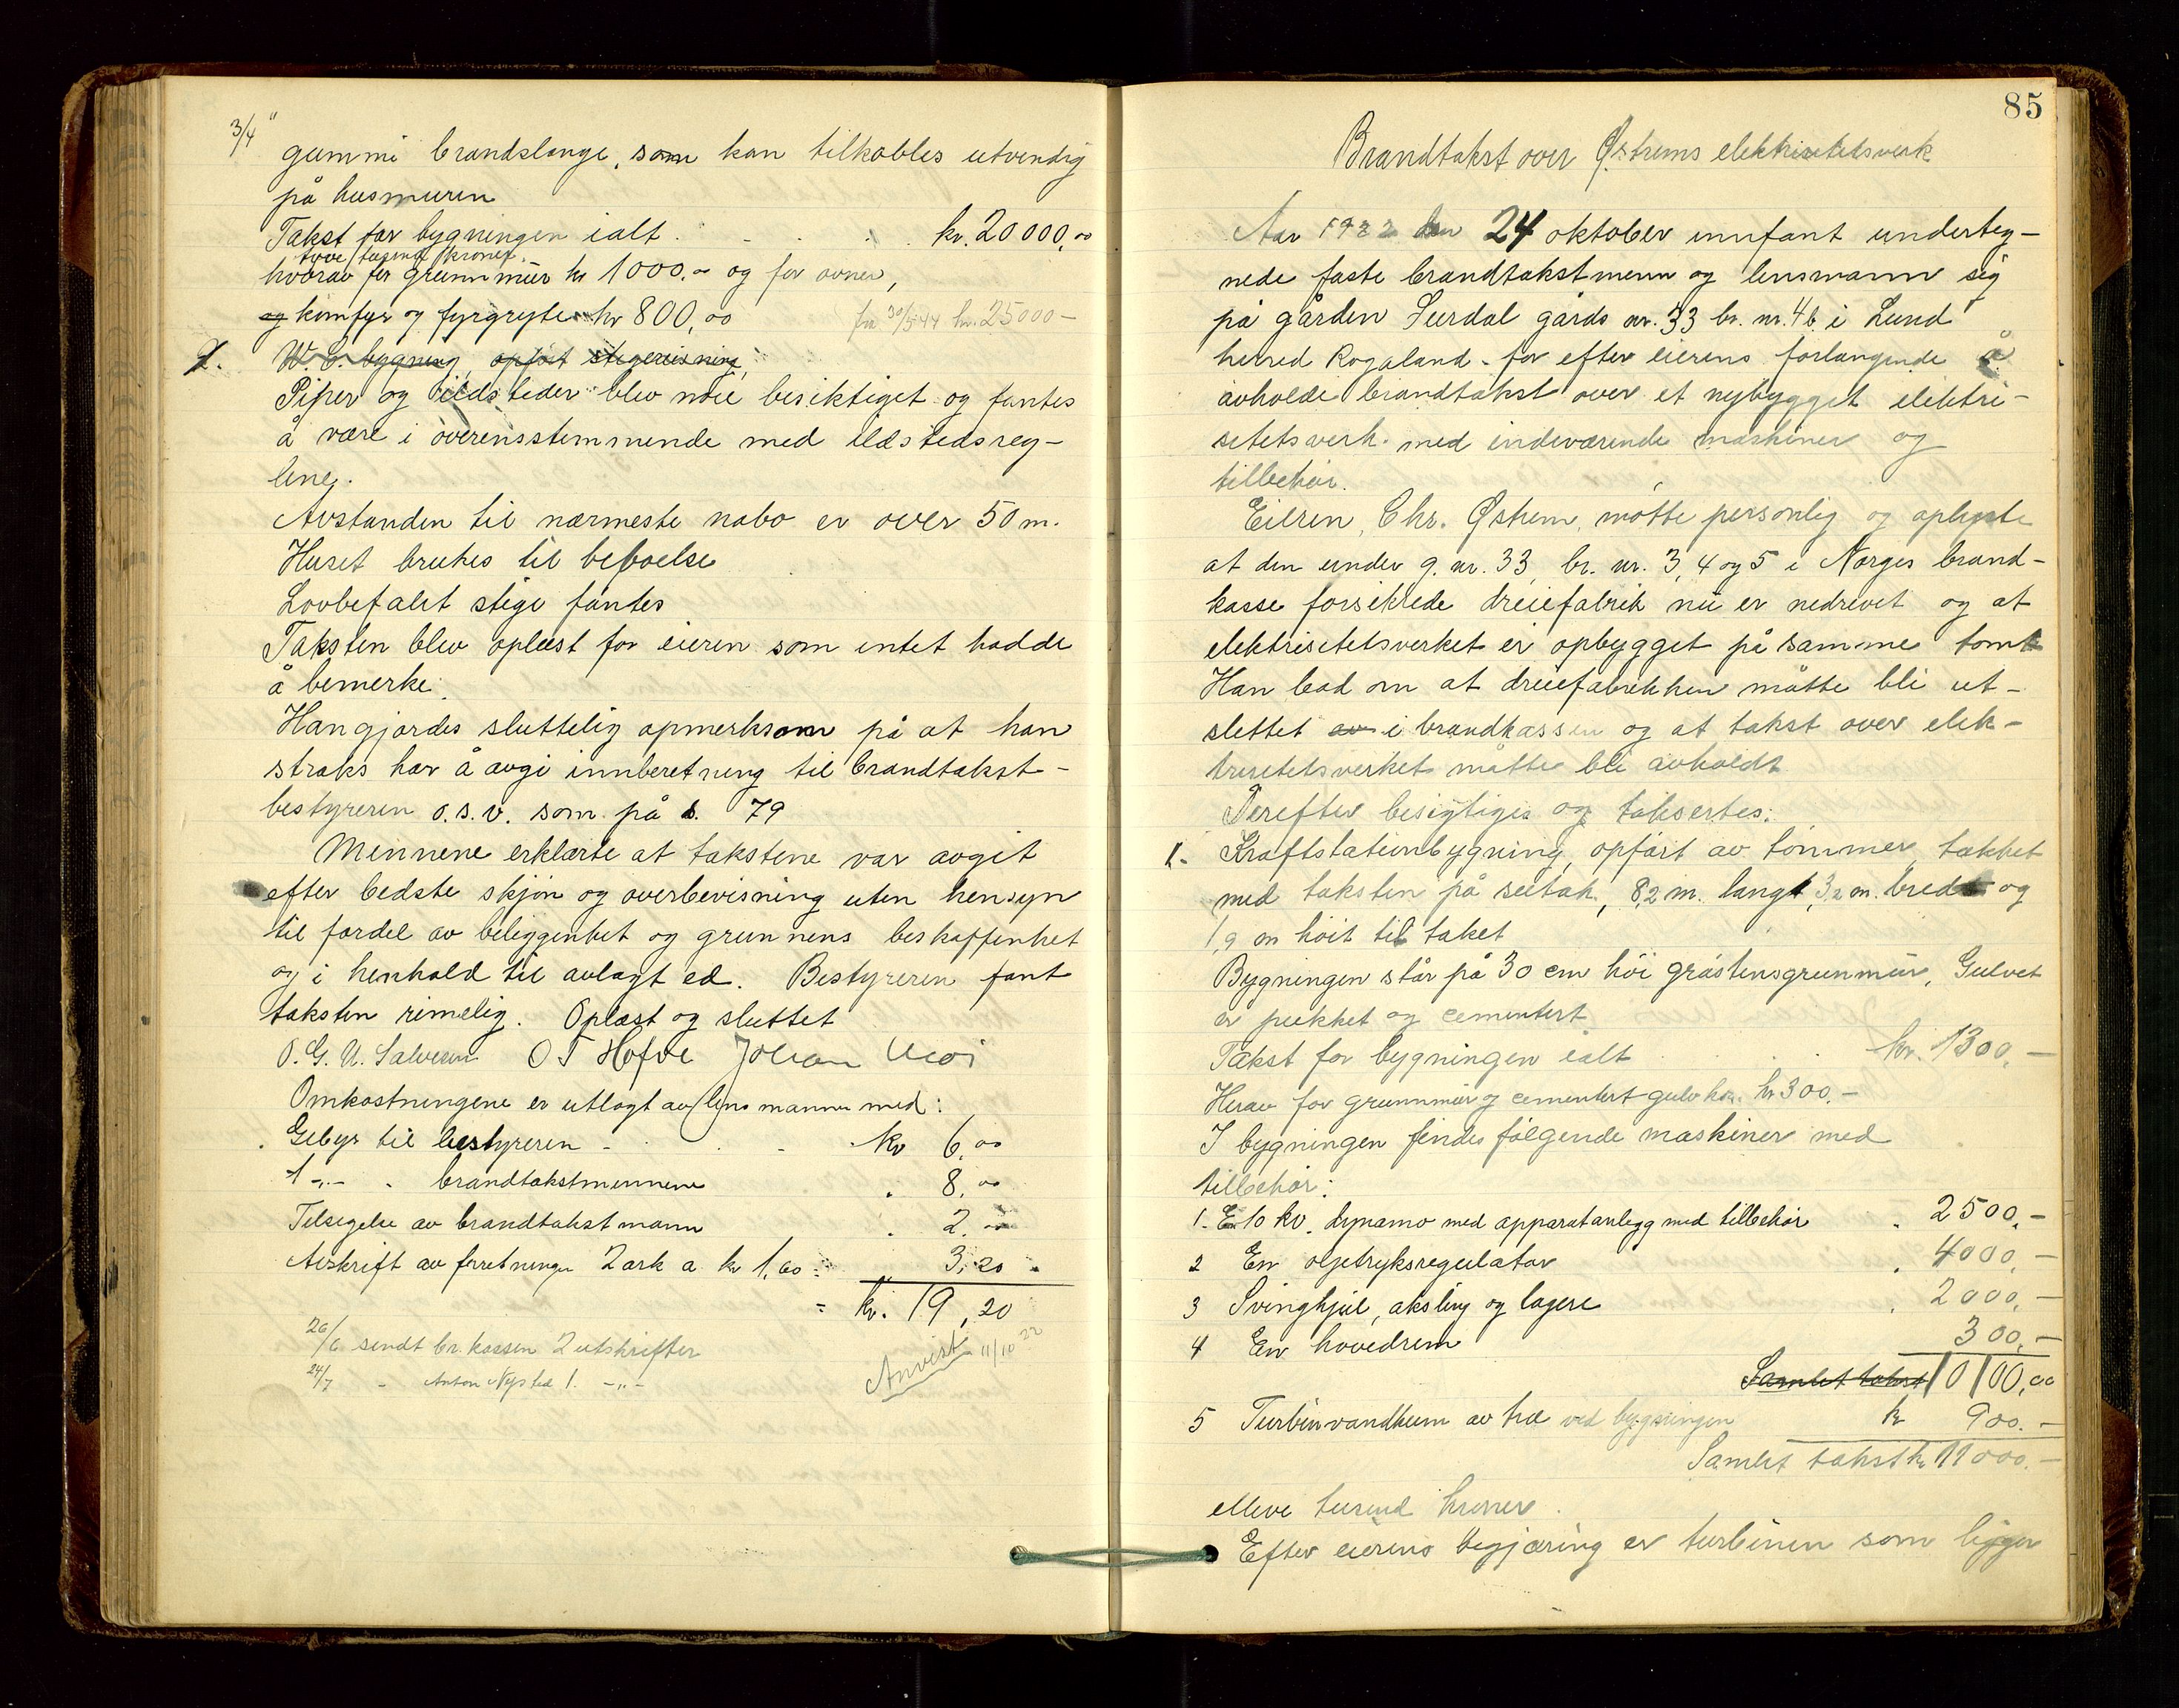 3/4" gummi brandslange, som kan tilkobles utvendig
på husmuren
Takst for bygningen ialt . . . . kr. 20000,00
tyve tusend kroner.
hvorav for grunnmur kr 1000.00 og for ovner,
og komfyr og fyrgryte kr 800,00 fra 30/5 44 kr. 25000-
2. W.C. bygning, opført stegereisning,
Piper og ildsteder blev nøie besiktiget og fantes
å være i overensstemmende med ildstedsreg-
lene.
Avstanden til nærmeste nabo er over 50 m.
Huset brukes til beboelse
Lovbefalet stige fantes
Taksten blev oplæst for eieren som intet hadde
å bemerke.
Han gjordes sluttelig opmerksom på at han
straks har å avgi innberetning til brandtakst-
bestyreren o.s.v. som på s. 79
Mennene erklærte at takstene var avgit
efter bedste skjøn og overbevisning uten hensyn
til fordel av beliggenhet og grunnens beskaffenhet
og i henhold til avlagt ed. Bestyreren fant
taksten rimelig. Oplæst og sluttet
O. G. U. Salvesen O T Hofve Johan Moi
Omkostningene er utlagt av lensmannen med:
Gebyr til bestyreren - . . - kr 6,00
1 -"- - brandtakstmennene . 8,00
Tilsigelse av brandtakstmann . 2.00
Avskrift av forretningen 2 ark a kr 1,60 = 3,20
= kr. 19,20
26/6 sendt br. kassen 2 utskrifter
24/7 - Anton Nysted 1. -"-
Anvist 11/10 22
85
Brandtakst over Østrems elektrisitetsverk
Aar 1922 den 24 oktober innfant underteg-
nede faste brandtakstmenn og lensmann sig
på gården Surdal gårds nr. 33 br. nr. 4 b. i Lund
herred Rogaland - for efter eierens forlangende å
avholde brandtakst over et nybygget elektri-
sitetsverk med indeværende maskiner og
tilbehør.
Eieren, Chr. Østrem, møtte personlig og oplyste
at den under g. nr. 33, br. nr. 3, 4 og 5 i Norges brand-
kasse forsikrede dreiefabrik nu er nedrevet og at
elektrisitetsverket er opbygget på samme tomt
Han bad om at dreiefabrikken måtte bli ut-
slettet av i brandkassen og at takst over elek-
trisitetsverket måtte bli avholdt
Derefter besigtiges og taksertes:
1. Kraftstationbygning, opført av tømmer, tækket
med taksten på sutak, 8,2 m. langt, 3,2 m. bredt og
1,9 m høit til taket
Bygningen står på 30 cm høi gråstensgrunmur, Gulvet
er pukket og cementert
Takst for bygningen ialt . . . kr. 1300,-
Herav for grunnmur og cementert gulv kr 300.-
I bygningen findes følgende maskiner med
tilbehør:
1. En 10 kv. dynamo med apparatanlegg med tilbehør . 2500.-
2 En oljetryksregulator . 4000,-
3 Svinghjul, aksling og lagere . 2000,-
4 En hovedrem 300,-
Samlet takst 10100,00
5 Turbinvandkum av træ ved bygningen kr 900.-
Samlet takst kr 11000.-
elleve tusend kroner.
Efter eierens begjæring er turbinen som ligger